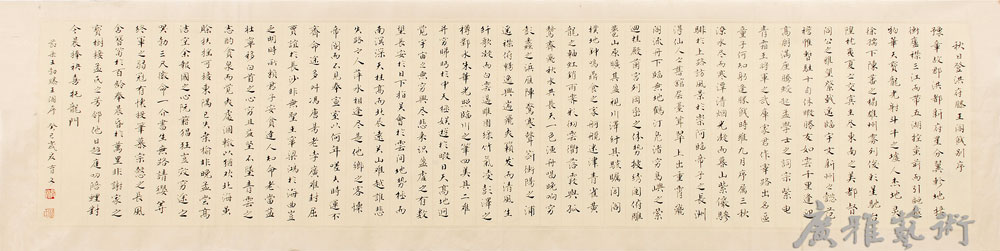 秋日登洪府滕王閣餞別序
豫章故郡洪都新府星分翼軫地接
衡廬襟三江而帶五湖控蠻荊而引甌越
物華天寶龍光射斗牛之墟人傑地靈
徐孺下陳蕃之榻雄州霧列俊彩星馳臺
隍枕夷夏之交賓主盡東南之美都督閻
公之雅望棨戟遙臨宇文新州之懿范
襜帷暫駐十旬休暇勝友如雲千里逢迎
高朋滿座騰蛟起鳳孟學士之詞宗紫電
青霜王將軍之武庫家君作宰路出名區
童子何知躬逢勝餞時維九月序屬三秋
潦水盡而寒潭清煙光凝而暮山紫儼驂
騑於上路訪風景於崇阿臨帝子之長洲
得仙人之舊館層臺聳翠上出重霄飛
閣流丹下臨無地鶴汀鳧渚窮島嶼之縈
迴桂殿蘭宮列岡巒之體勢披繡闥俯雕
甍山原曠其盈視川澤紆其駭矚閭閻
撲地鐘鳴鼎食之家舸艦迷津青雀黃
龍之軸虹銷雨霽彩徹雲衢落霞與孤
鶩齊飛秋水共長天一色漁舟唱晚響窮
彭蠡之濱雁陣驚寒聲斷衡陽之浦
遙襟俯暢逸興遄飛爽籟發而清風生
纖歌凝而白雲遏睢園綠竹氣凌彭澤之
樽鄴水朱華光照臨川之筆四美具二難
并窮睇眄於中天極娛遊於暇日天高地迥
覺宇宙之無窮興盡悲來識盈虛之有數
望長安於日下指吳會於雲間地勢極而
南溟深天柱高而北辰遠關山難越誰悲
失路之人萍水相逢盡是他鄉之客懷
帝閽而不見奉宣室以何年嗟乎時運不
齊命途多舛馮唐易老李廣難封屈
賈誼於長沙非無聖主竄梁鴻於海曲豈
乏明時所賴君子安貧達人知命老當益
壯寧移白首之心窮且益堅不墜青雲之
志酌貪泉而覺爽處涸轍以猶歡北海雖
賒扶搖可接東隅已失桑榆非晚孟嘗高
潔空餘報國之心阮籍猖狂豈效窮途之
哭勃三尺微命一介書生無路請纓等
終軍之弱冠有懷投筆慕宗愨之長風
舍簪笏於百齡奉晨昏於萬里非謝家之
寶樹接孟氏之芳鄰他日趨庭叨陪鯉對
今晨捧袂喜托龍門
王勃滕王閣序
廣雅藝術